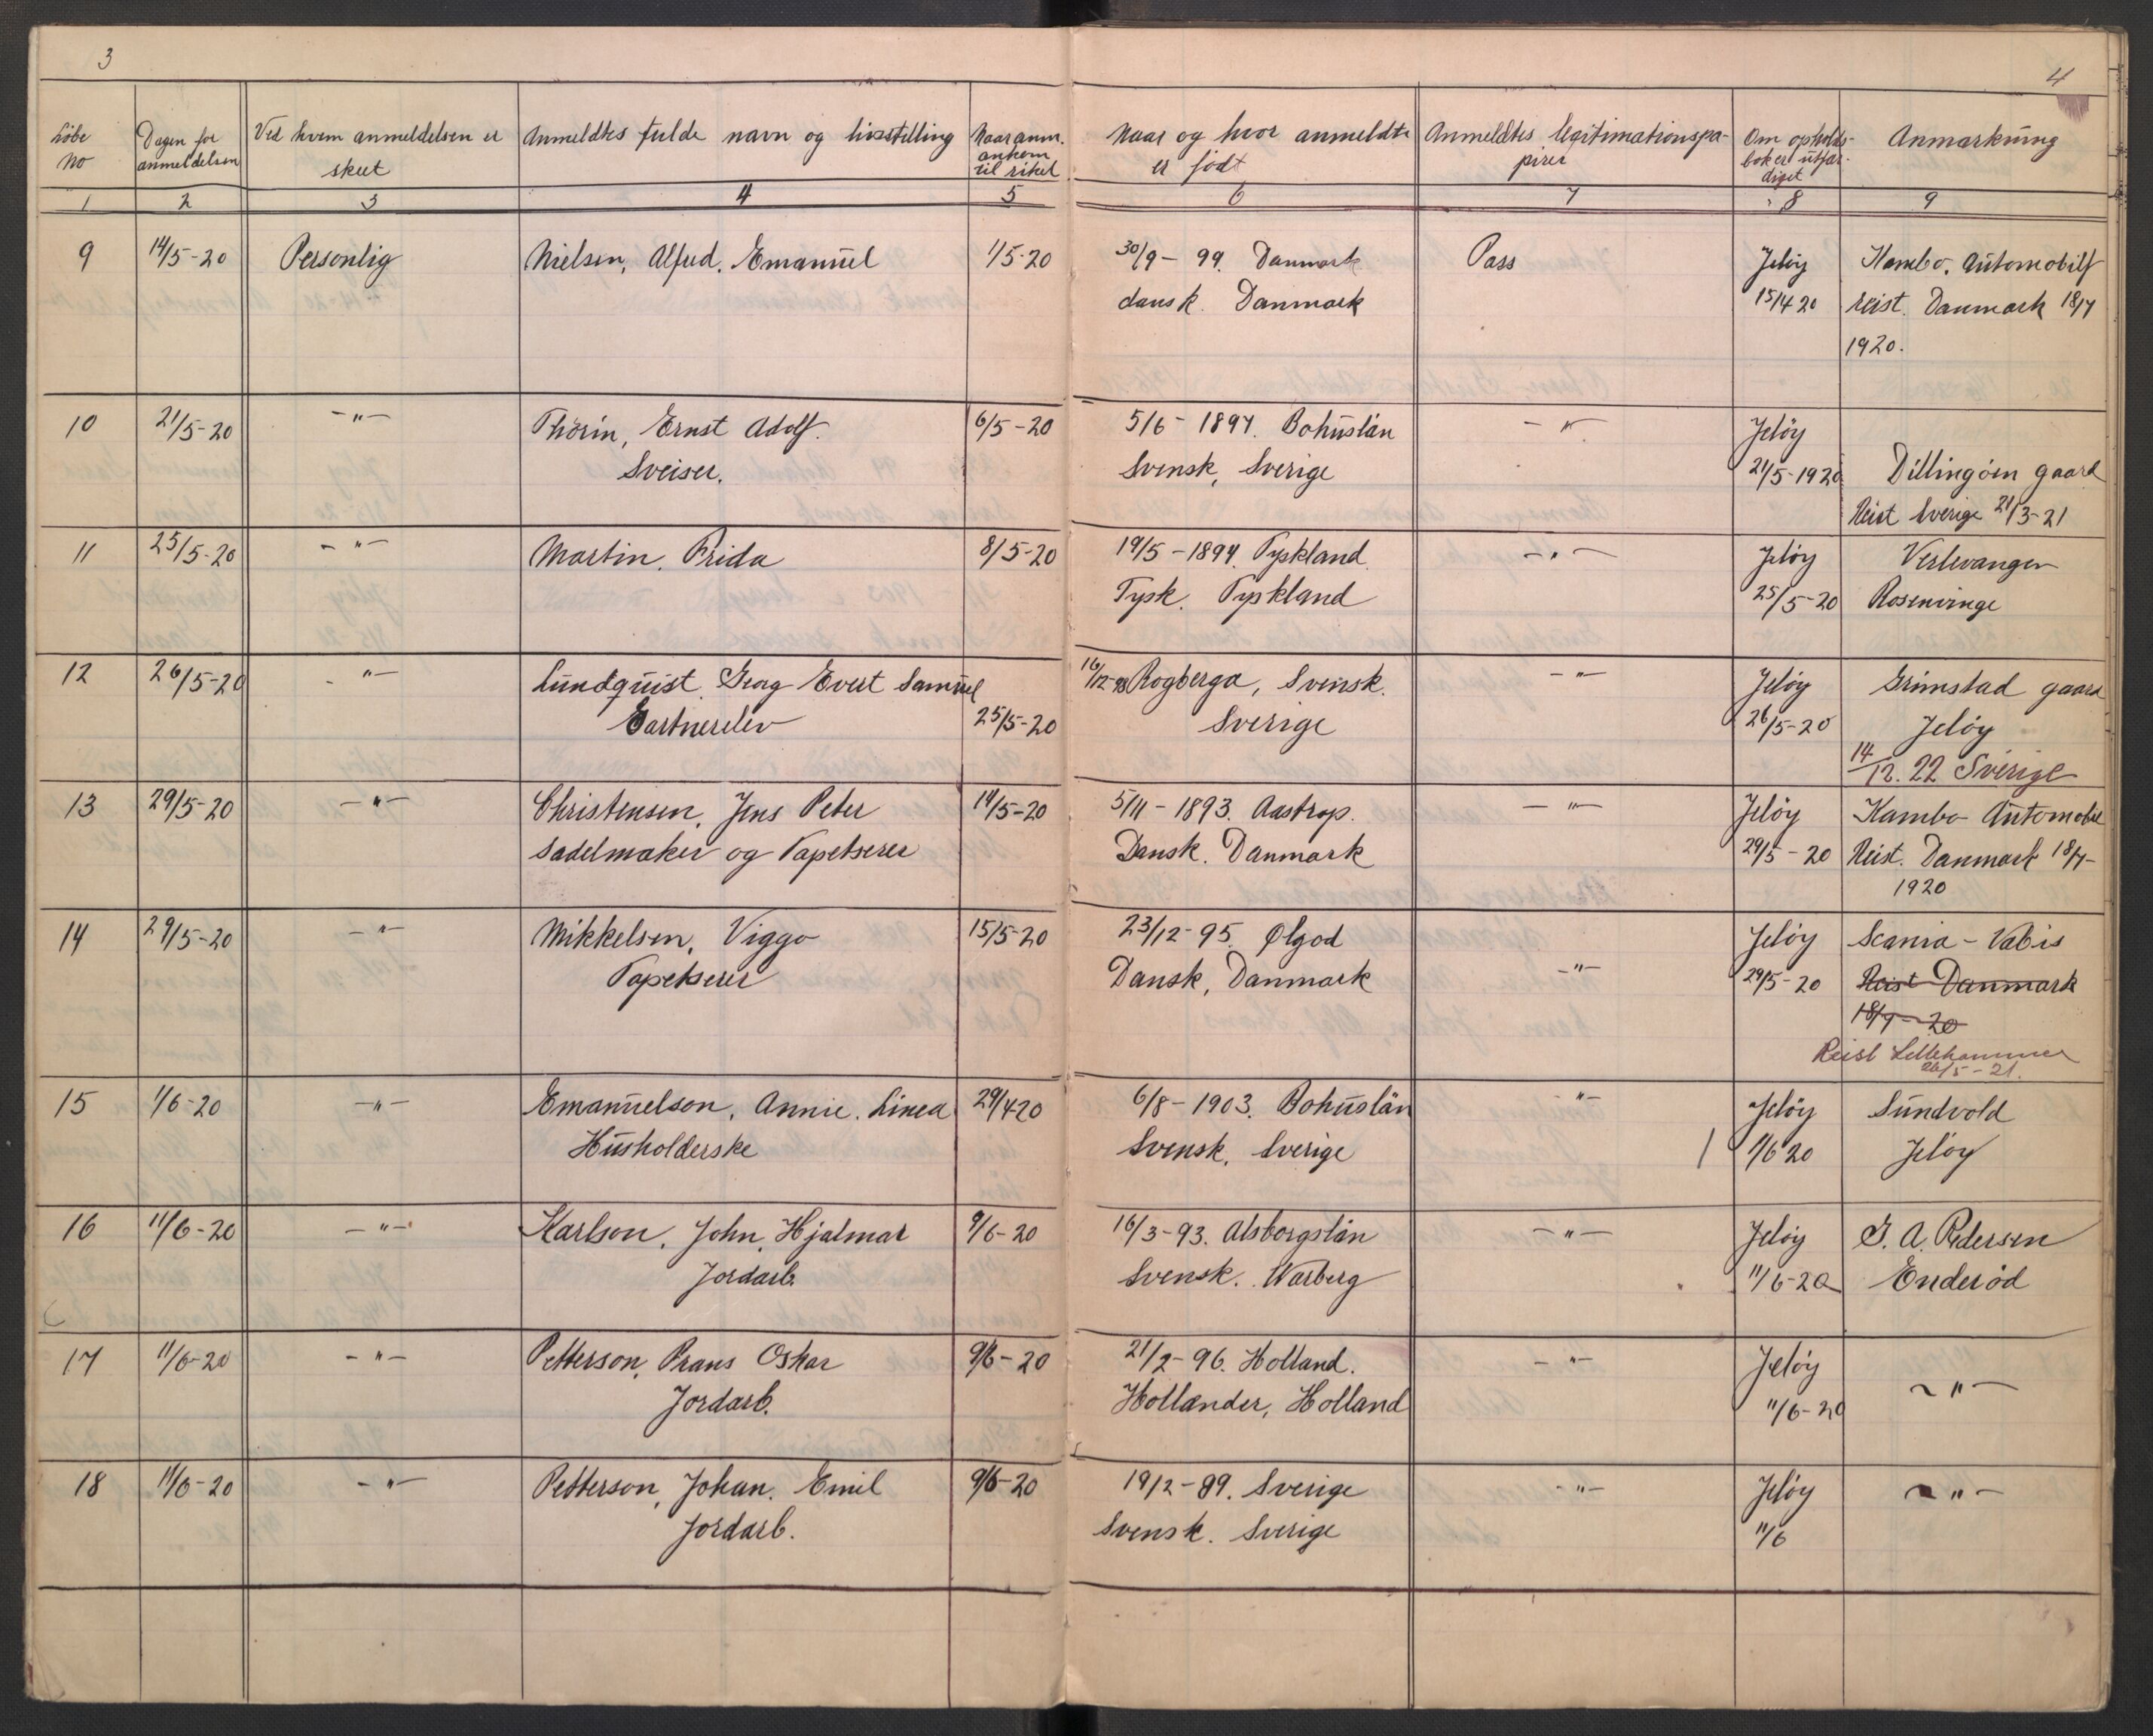 3
4
Løbe No
Dagen for anmeldelsen
Ved hvem anmeldelsen er skeet
Anmeldtes fulde navn og livsstilling
Naar anm. ankom til riket
Naar og hvor anmeldte er født
Anmeldtes legitimationspapirer
Om opholdsbok er utfærdiget
Anmærkning
1 2 3 4 5 6 7 8 9
9 14/5-20 Personlig Nielsen, Alfred. Emanuel 1/5-20 30/9-99. Danmark Pass Jeløy Kambo. Automobilf
dansk. Danmark 15/4 20 reist. Danmark 18/7
1920.
10 21/5-20 -"- Thörin, Ernst Adolf. 6/5-20 5/6-1897. Bohuslän -"- Jeløy
Sveiser. Svensk, Sverige 21/5-1920 Dillingøen gaard
Reist Sverige 21/3-21
11 25/5-20 -"- Martin. Frida 8/5-20 19/5-1894. Tyskland -"- Jeløy Verlevangen
Tysk. Tyskland 25/5-20 Rosenvinge
12 26/5-20 -"- Lundquist. Georg Evert Samuel 16/12-98 Rogberga, Svensk. -"- Jeløy Grimstad gaard
Gartnerelev 25/5-20 Sverige 26/5-20 Jeløy
14/12. 22 Sverige
13 29/5-20 -"- Christensen, Jens Peter 14/5-20 5/11-1893. Aastrup. -"- Jeløy Kambo Automobil
Sadelmaker og Tapetserer Dansk. Danmark 29/5-20 Reist. Danmark 18/7-
1920
14 29/5-20 -"- Mikkelsen, Viggo 15/5-20 23/12-95. Ølgod Jeløy Scania-Vabis
Tapetserer Dansk, Danmark -"- 29/5-20 Reist Danmark
18/7-20
Reist Lillehammer
26/5-21.
15 1/6-20 -"- Emanuelson, Annie. Linea 29/4 20 6/8-1903. Bohuslän -"- Jeløy Sundvold
Husholderske Svensk. Sverige 1/6 20 Jeløy
16 11/6-20 -"- Karlson. John. Hjalmar 9/6-20 16/3-93. Alsborgslän -"- Jeløy G. A. Pedersen
Jordarb. Svensk. Warberg 11/6-20 Enderød
17 11/6-20 -"- Petterson, Frans Oskar 9/6-20 21/2-96. Holland. -"- Jeløy -"-
Jordarb. Hollænder, Holland 11/6-20
18 11/6-20 -"- Petterson, Johan. Emil 9/6-20 19/2-89. Sverige -"- Jeløy -"-
Jordarb. Svensk. Sverige 11/6